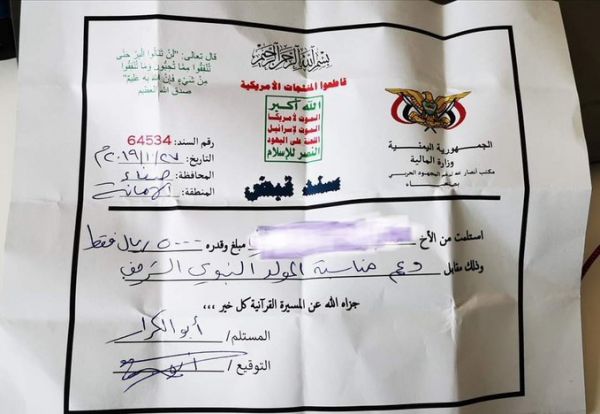 بسم الله الرحمن الرحيم
قال تعالى: "لن تنالوا البر حتى
تنفقوا مما تحبون وما تنفقوا
من شيء فإن الله به عليم"
صدق الله العظيم
قاطعوا المنتجات الأمريكية
الله أكبر
الموت لأمريكا
الموت لإسرائيل
اللعنة على اليهود
النصر للإسلام
سند قبض
الجمهورية اليمنية
وزارة المالية
مكتب أنصار الله لدعم المجهود الحربي
بصنعاء
رقم السند: 64534
التاريخ: ٢٧/١٠/٢٠١٩م
المحافظة: صنعاء
المنطقة: الأمانة
استلمت من الأخ مبلغ وقدره ٥٠٠٠ ريال فقط
وذلك مقابل دعم مناسبة المولد النبوي الشريف
جزاه الله عن المسيرة القرآنية كل خير ،،،
المستلم/ أبو الكرار
التوقيع/